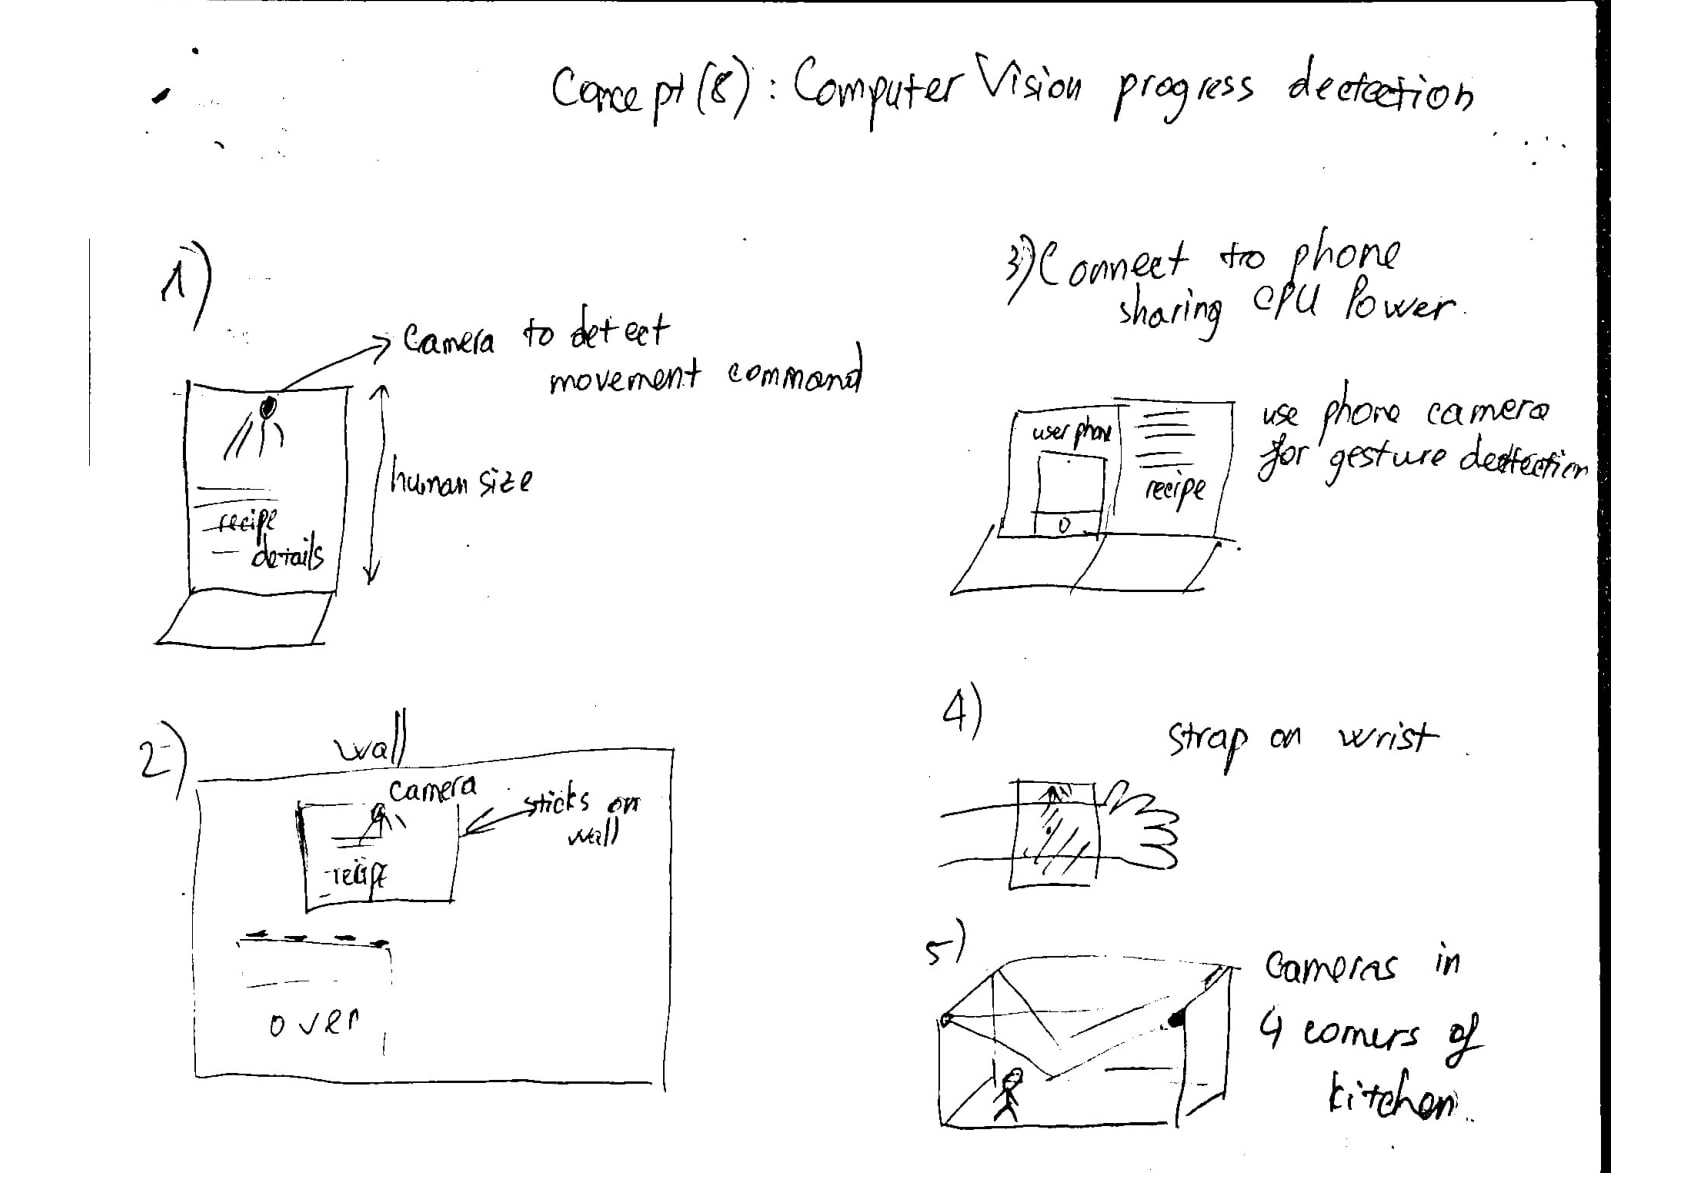 Concept (8): Computer Vision progress dectection
1)
Camera to detect
movement command
human size
recipe
details
2)
wall
camera
sticks on
wall
recipe
over
3) Connect to phone
sharing CPU Power.
user phone
recipe
use phone camera
for gesture dectection
4)
strap on wrist.
5)
Cameras in
4 corners of
kitchen.